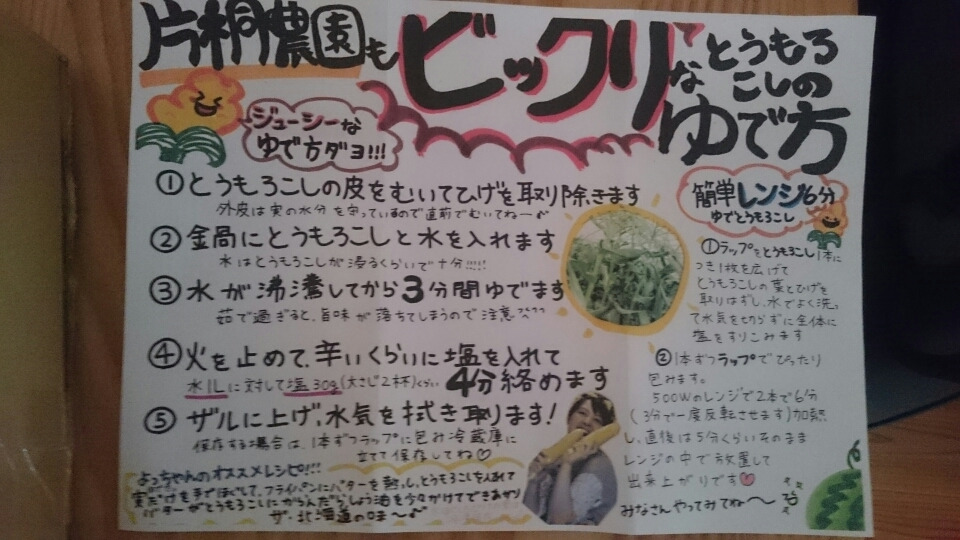 片桐農園も
ビックリな
とうもろ
こしの
ゆで方
ジューシーな
ゆで方ダヨ!!!
①とうもろこしの皮をむいてひげを取り除きます
外皮は実の水分を守っているので直前でむいてねー♪
②金局にとうもろこしと水を入れます
水はとうもろこしが浸るくらいで十分!!!!
③水が沸騰してから3分間ゆでます
茹で過ぎると、旨味が落ちてしまうので注意
④火を止めて、辛いくらいに塩を入れて
水1Lに対して塩30g(大さじ2杯)くらい
4分絡めます
⑤ザルに上げ、水気を拭き取ります!
保存する場合は、1本ずつラップに包み冷蔵庫に
立てて保存してね♡
よっちゃんのオススメレシピ!!!
実だけを手でほぐして、フライパンにバターを熱っし、とうもろこしを入れて
バターがとうもろこしにからんだらしょう油を少々かけてできあがり
ザ・北海道の味〜♪
簡単レンジ6分
ゆでとうもろこし
①ラップをとうもろこし1本に
つき1枚を広げて
とうもろこしの葉とひげを
取りはずし、水でよく洗っ
て水気を切らずに全体に
塩をすりこみます
②1本ずつラップでぴったり
包みます。
500Wのレンジで2本で6分
(3分で一度反転させます)加熱
し、直後は5分くらいそのまま
レンジの中で放置して
出来上がりです♡
みなさんやってみてね〜